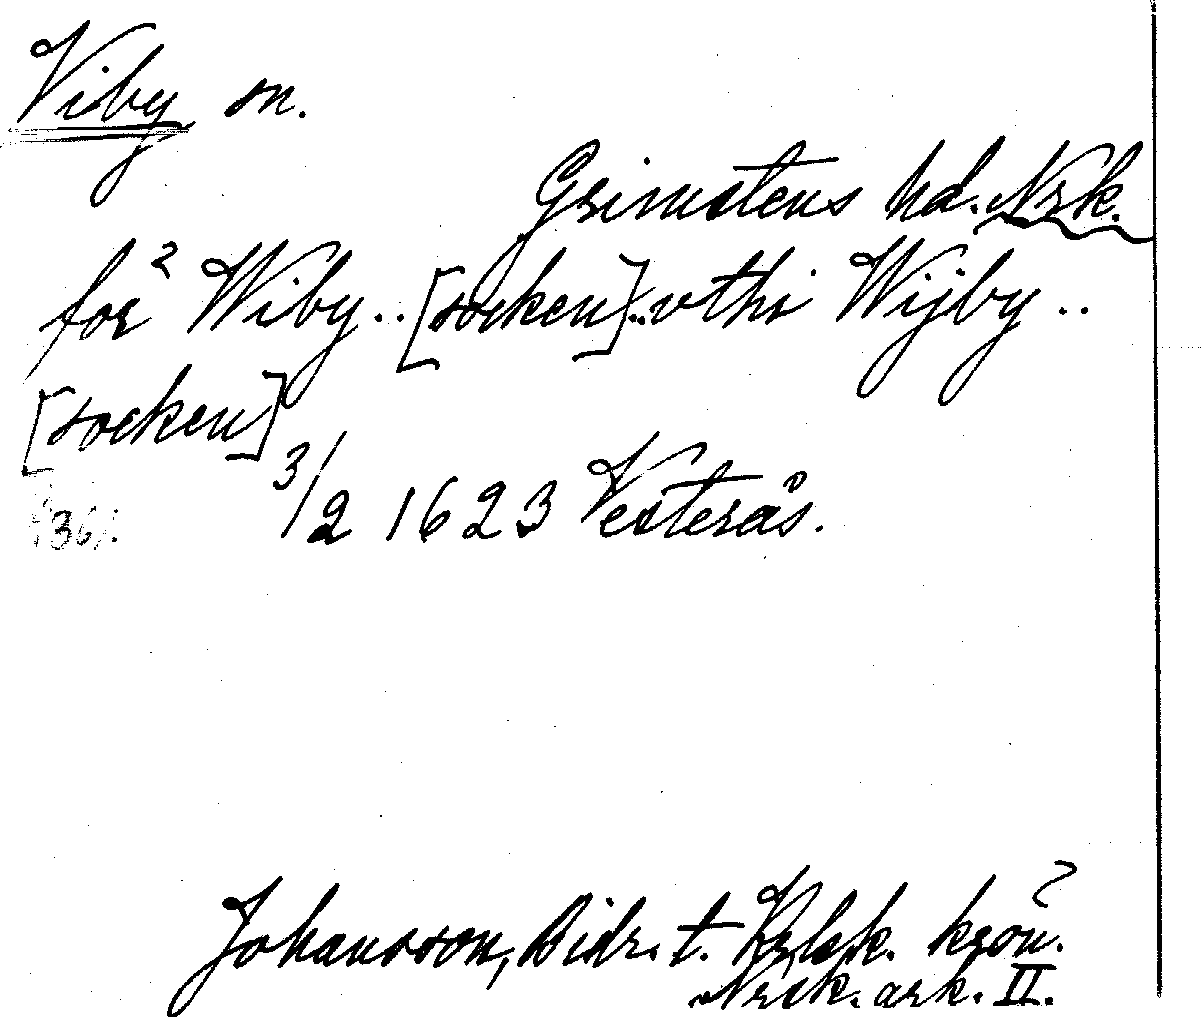 Viby sn.
Grimstens hd. Nrk.
för Wiby.. [socken].. vthi Wijby..
[socken]
3/2 1623 Vesterås.
Johansson, Bidr. t. krön.
Nrsk. ark. II.